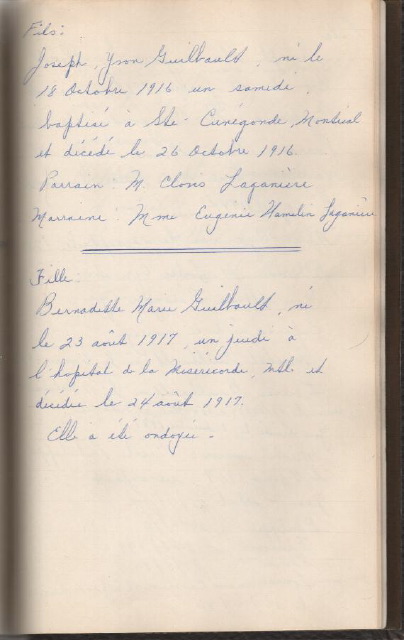 Fils:
Joseph, Yvon Guilbault, né le
18 Octobre 1916 un samedi,
baptisé à Ste-Cunégonde, Montréal
et décédé le 26 Octobre 1916.
Parrain: M. Clovis Laganière
Marraine: Mme Eugénie Hamelin Laganière
Fille:
Bernadette Marie Guilbault, né
le 23 août 1917, un jeudi à
l'hopital de la Miséricorde, Mtl. et
décédée le 24 août 1917.
Elle a été ondoyée.